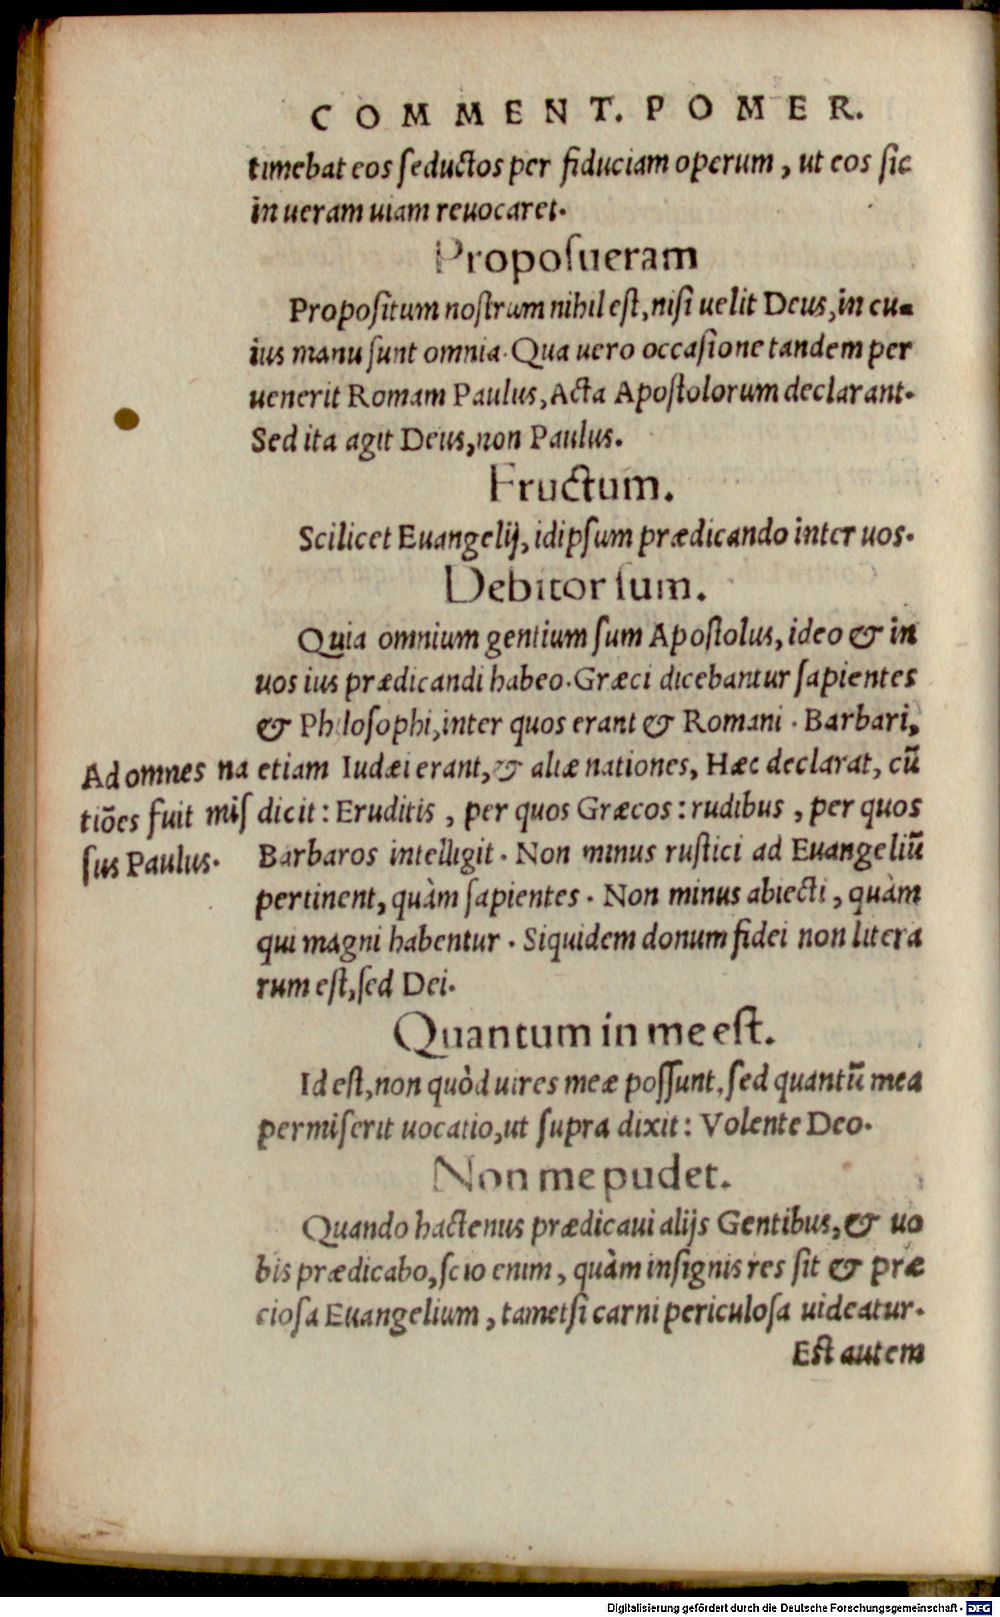 COMMENT. POMER.
timebat eos ſeductos per fiduciam operum, ut eos ſic
in ueram uiam reuocaret.
Propoſueram
Propoſitum noſtrum nihil eſt, niſi uelit Deus, in cu-
ius manu ſunt omnia. Qua uero occaſione tandem per
uenerit Romam Paulus, Acta Apoſtolorum declarant.
Sed ita agit Deus, non Paulus.
Fructum.
Scilicet Euangelij, idipſum prædicando inter uos.
Debitor ſum.
Quia omnium gentium ſum Apoſtolus, ideo & in
uos ius prædicandi habeo. Græci dicebantur ſapientes
& Philoſophi, inter quos erant & Romani. Barbari,
etiam Iudæi erant, & aliæ nationes, Hæc declarat, cũ
dicit: Eruditis, per quos Græcos: rudibus, per quos
Barbaros intelligit. Non minus ruſtici ad Euangeliũ
pertinent, quàm ſapientes. Non minus abiecti, quàm
qui magni habentur. Siquidem donum fidei non litera
rum eſt, ſed Dei.
Ad omnes na
tiões fuit miſ
ſus Paulus.
Quantum in me eſt.
Id eſt, non quòd uires meæ poſſunt, ſed quantũ mea
permiſerit uocatio, ut ſupra dixit: Volente Deo.
Non me pudet.
Quando hactenus prædicaui alijs Gentibus, & uo
bis prædicabo, ſcio enim, quàm inſignis res ſit & præ
cioſa Euangelium, tametſi carni periculoſa uideatur.
Eſt autem
Digitalisierung gefördert durch die Deutsche Forschungsgemeinschaft - DFG